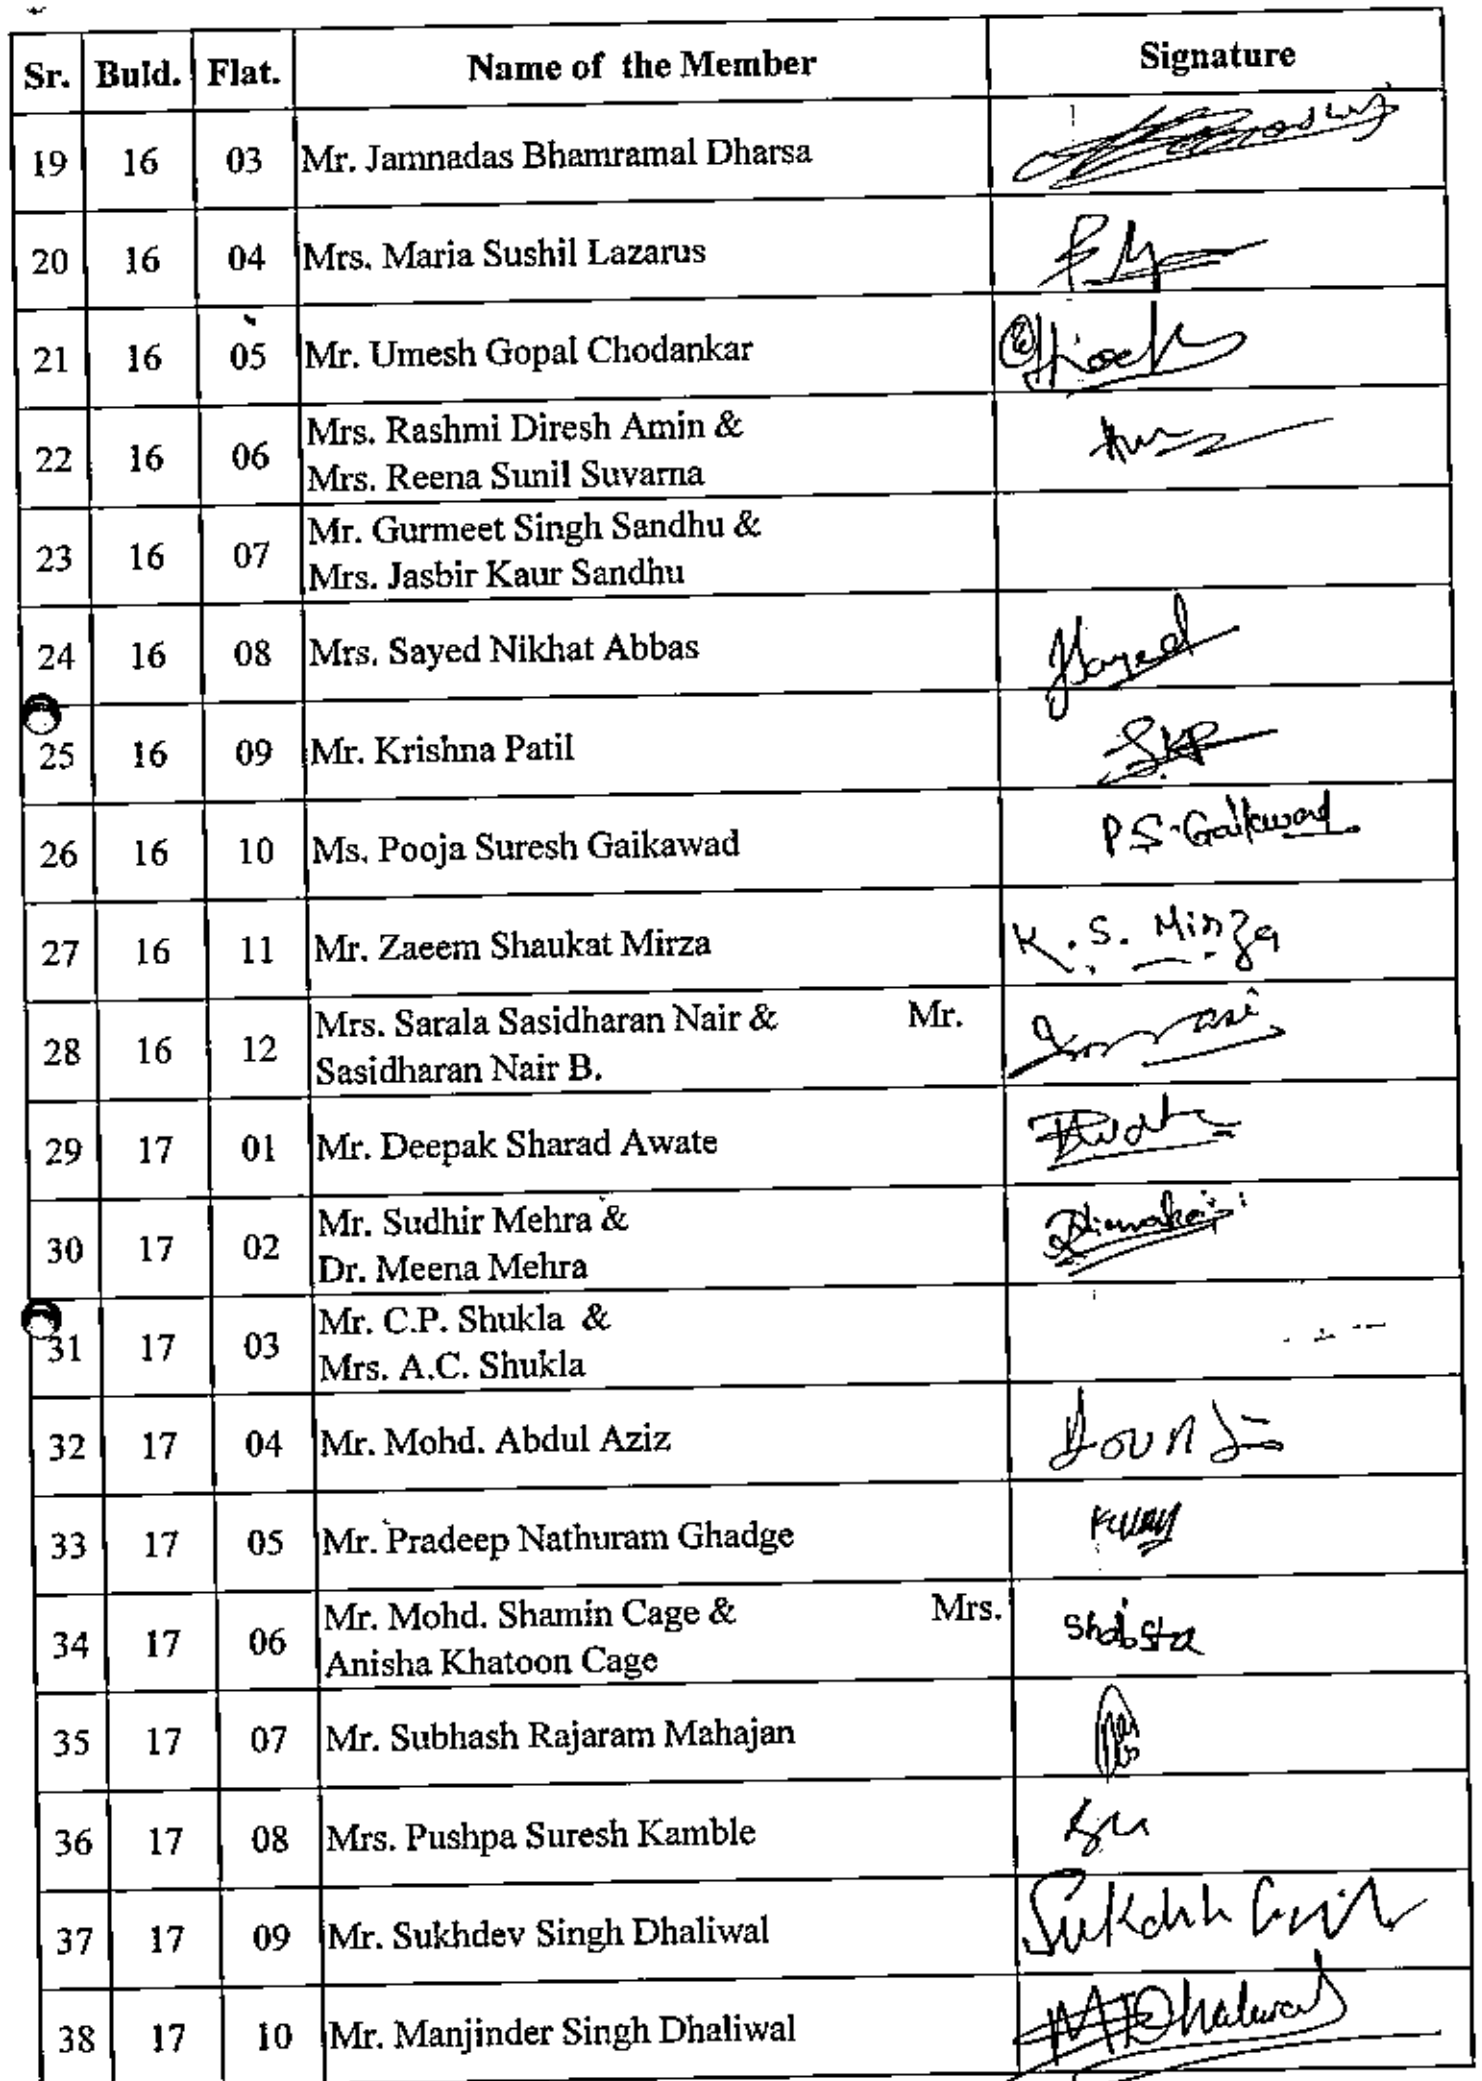 Sr. Buld. Flat. Name of the Member Signature
19 16 03 Mr. Jamnadas Bhamramal Dharsa
20 16 04 Mrs. Maria Sushil Lazarus
21 16 05 Mr. Umesh Gopal Chodankar
22 16 06 Mrs. Rashmi Diresh Amin &
Mrs. Reena Sunil Suvarna
23 16 07 Mr. Gurmeet Singh Sandhu &
Mrs. Jasbir Kaur Sandhu
24 16 08 Mrs. Sayed Nikhat Abbas Sayed
25 16 09 Mr. Krishna Patil SKP
26 16 10 Ms. Pooja Suresh Gaikawad P S. Gaikawad.
27 16 11 Mr. Zaeem Shaukat Mirza K. S. Mirza
28 16 12 Mrs. Sarala Sasidharan Nair & Mr.
Sasidharan Nair B.
29 17 01 Mr. Deepak Sharad Awate
30 17 02 Mr. Sudhir Mehra &
Dr. Meena Mehra
31 17 03 Mr. C.P. Shukla &
Mrs. A.C. Shukla
32 17 04 Mr. Mohd. Abdul Aziz
33 17 05 Mr. Pradeep Nathuram Ghadge
34 17 06 Mr. Mohd. Shamin Cage & Mrs. Shabista
Anisha Khatoon Cage
35 17 07 Mr. Subhash Rajaram Mahajan
36 17 08 Mrs. Pushpa Suresh Kamble
37 17 09 Mr. Sukhdev Singh Dhaliwal
38 17 10 Mr. Manjinder Singh Dhaliwal M Dhaliwal